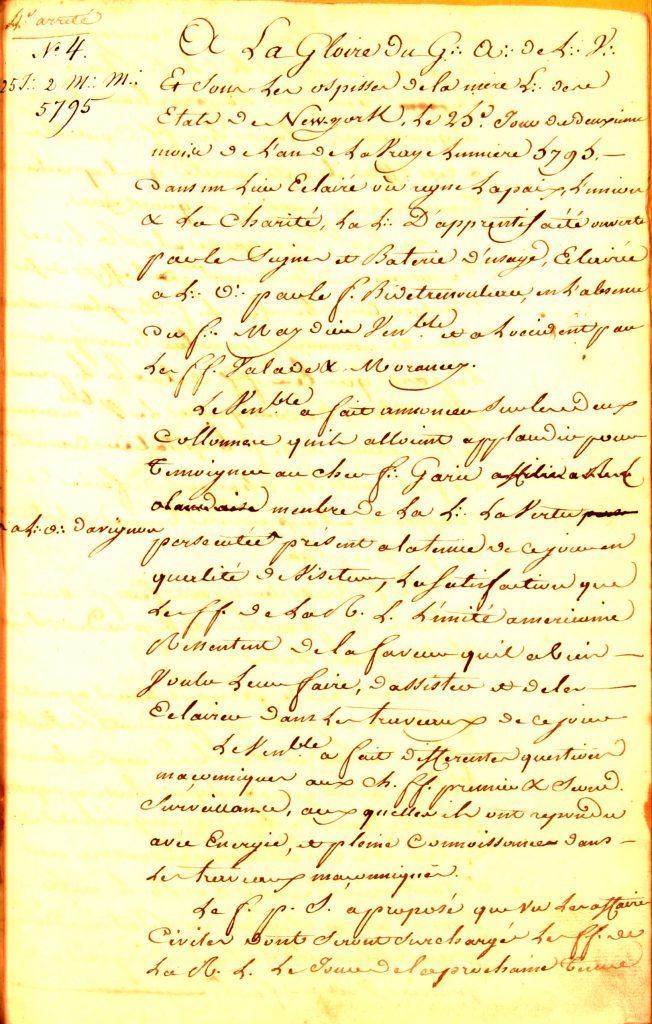 4.e arrêté
N.º 4.
25 J.: 2 M.: M.:
5795
A La Gloire du G.: A.: de L.: V.:
Et Sous Les ospisses de la mère L.: de ce
Etats de New-york, Le 25.e Jour du deuxieme
mois de L'an de La Vraye Lumiere 5795.—
Dans un Lieu Eclairé où regne La paix, L'union
& La Charité, La L.: D'apprentif a été ouverte
par les Signes et Baterie d'usage, Eclairée
a L.: O.: par le f.: Bidetrenouleau, en L'absence
du f.: Maydieu Ven.ble et a L'occident par
Les ff. Valade & Morancy.
Le Ven.ble a fait annoncer Sur les deux
Collonnes qu'ils alloient applaudir pour
temoigner au cher f.: Garie
membre de La L.: La Vertu
a L.: O.: davignon
persecutée présent a la tenue de ce jour en
quallité de Visiteur, La Satisfaction que
Les ff. de La R. L. L'unité americaine
Ressentent de la faveur qu'il a bien —
Voulu Leur faire, d'assister et de les —
Eclairer dans Les travaux de ce jour
Le Ven.ble a fait differentes questions
maçonniques aux Ch. ff. premier & Second.
Surveillance, aux quelles ils ont repondu
avec Energie, et pleine Connoissance dans —
Les travaux maçonniques.
Le f. p. S. a proposé que Vu Les affaires
Civiles dont Seront Surchargé Les ff. de
La R. L. Le Jour de la prochaine tenue